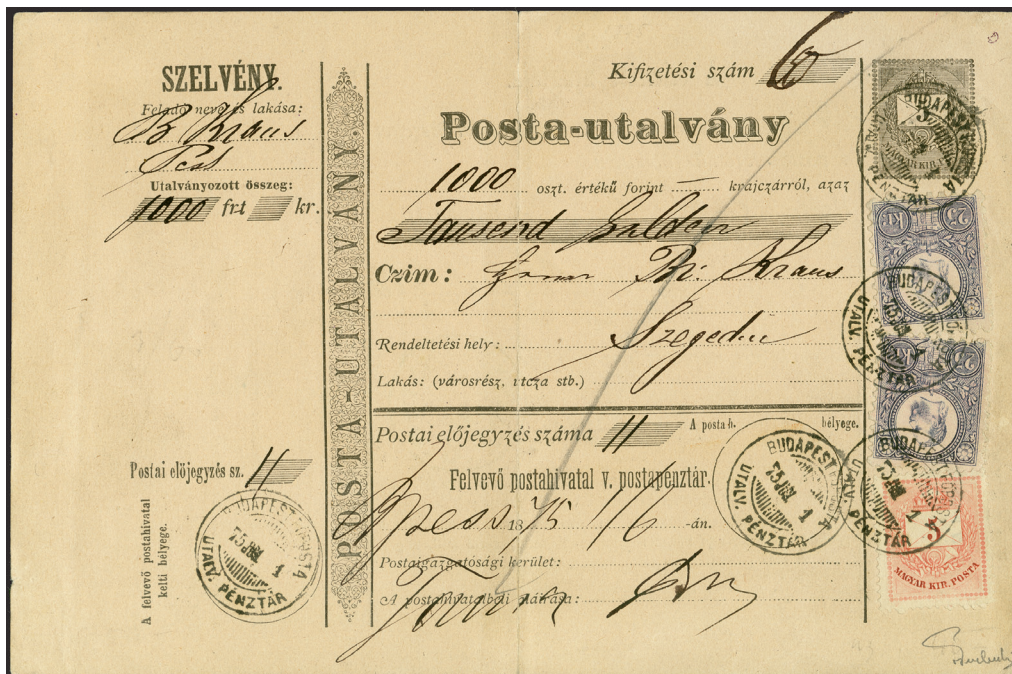 SZELVÉNY.
Feladó neve és lakása:
B. Kraus
Pest
Utalványozott összeg:
1000 frt kr.
Postai előjegyzés sz. 11
A felvevő postahivatal
kelti bélyege.
BUDAPEST FŐPOSTA
75 JUN 1
UTALV. PÉNZTÁR
POSTA-UTALVÁNY.
Kifizetési szám
Posta-utalvány
1000 oszt. értékű forint — krajczárról, azaz
Tausend Gulden
Czim: Herrn B. Kraus
Rendeltetési hely: Szegedin
Lakás: (városrész, utcza stb.)
Postai előjegyzés száma 11
A posta h. bélyege.
Felvevő postahivatal v. postapénztár.
Pest 1875 1/6 -án.
Postaigazgatósági kerület:
A postahivatalbeli aláírása:
BUDAPEST FŐPOSTA
75 JUN 1
UTALV. PÉNZTÁR
5
MAGYAR KIR.
BUDAPEST FŐPOSTA
PÉNZTÁR
Kr. 25
BUDAPEST
75 JUN 1
UTALV. PÉNZTÁR
Kr. 25
BUDAPEST FŐPOSTA
75 JUN 1
UTALV. PÉNZTÁR
5
MAGYAR KIR. POSTA